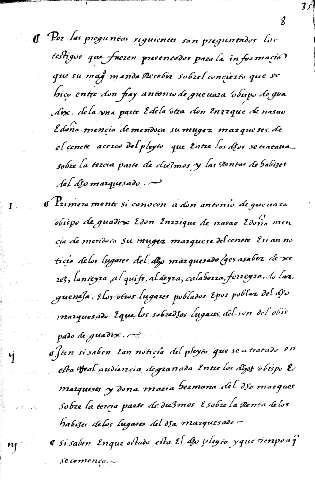 35
8
¶ Por las preguntas siguientes sean preguntados los
testigos que fueren presentados para la informacion
que su mag manda Recebir sobrel concierto que se
hizo entre don fray antonio de guevara obispo de gua
dix. de la vna parte E de la otra don Enrrique de nasao
E doña mencia de mendoça su muger marqueses. de
el cenete acerca del pleyto que Entre los dhos se tratava
sobre la tercia parte de diezmos y las Rentas de habizes
del dho marquesado.
I. ¶ Primera mente si conocen a don antonio de guevara
obispo de guadix E don Enrrique de nasao E doña men
cia de mendoça su muger marqueses del cenete E si an no
ticia de los lugares del dho marquesado ques a saber de xe
rez, lanteyra, al quife, aldeyra, calahorra, ferreyra, do lar
guenija. E los otros lugares poblados E por poblar del dho
marquesado E que los sobredhos lugares del son del obis
pado de guadix.
ij ¶ Iten si saben E an noticia del pleyto que se a tratado en
esta Real audiencia de granada Entre los dhos obispo E
marqueses y dona maria
del dho marques
sobre la tercia parte de diezmos E sobre la Renta de los
habizes de los lugares del dho marquesado
iij ¶ si saben En que estado esta El dho pleyto y que tiempo a q
se començo